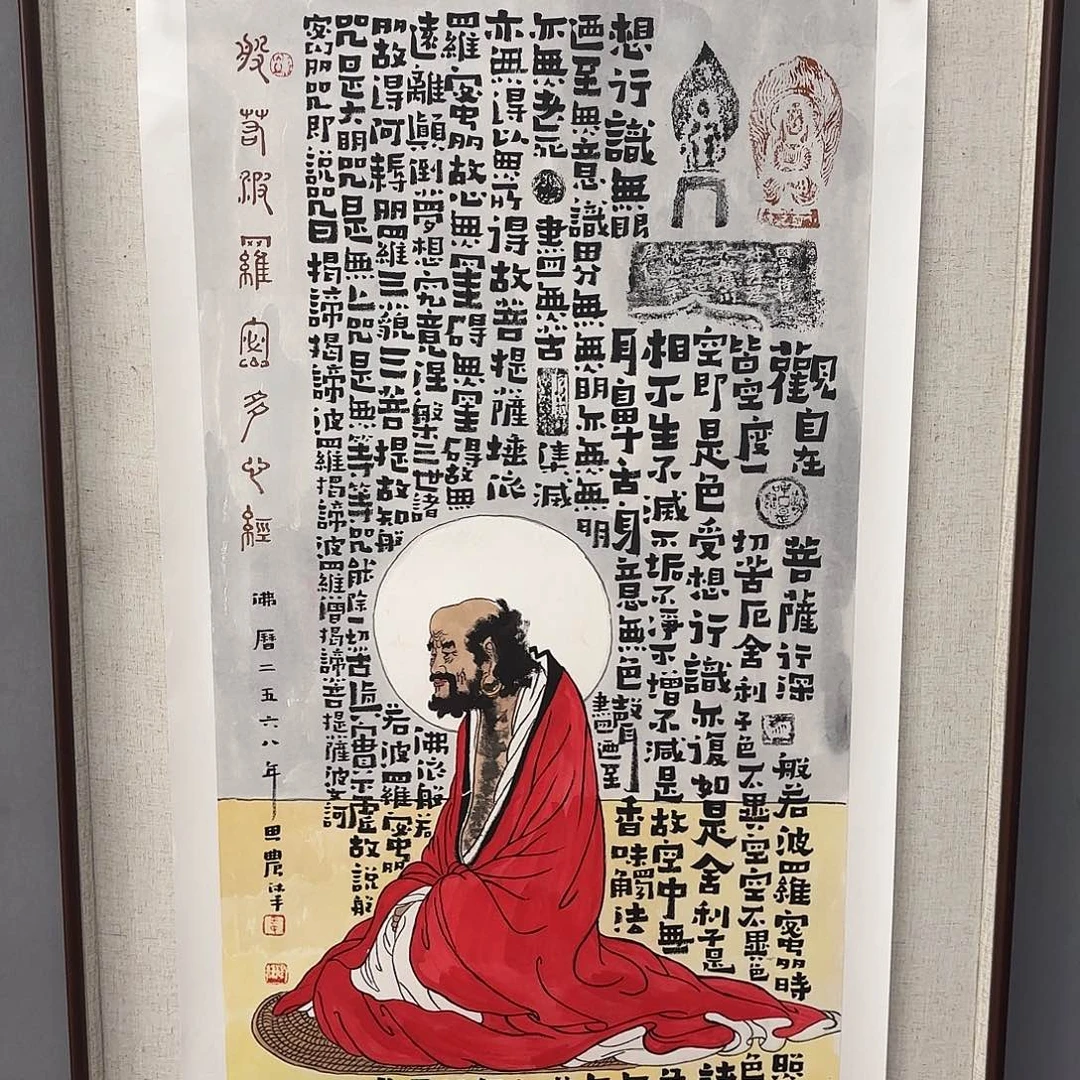 觀自在菩薩行深般若波羅蜜多時照
皆空度一切苦厄舍利子色不異空空不異色
空即是色受想行識亦復如是舍利子是諸
相不生不滅不垢不淨不增不減是故空中無色
想行識無眼
耳鼻舌身意無色聲香味觸法
迺至無意識界無無明亦無無明
盡迺至
亦無老死盡亦無苦集滅
亦無得以無所得故菩提薩埵依
羅蜜多故心無罣礙無罣礙故無
遠離顛倒夢想究竟涅槃三世諸
佛依般若
多故得阿耨多羅三藐三菩提故知般
若波羅蜜多
咒是大明咒是無上咒是無等等咒能除一切苦真實不虛故說般
蜜多咒即說咒曰揭諦揭諦波羅揭諦波羅僧揭諦菩提薩婆訶
般若波羅蜜多心經
佛曆二五六八年